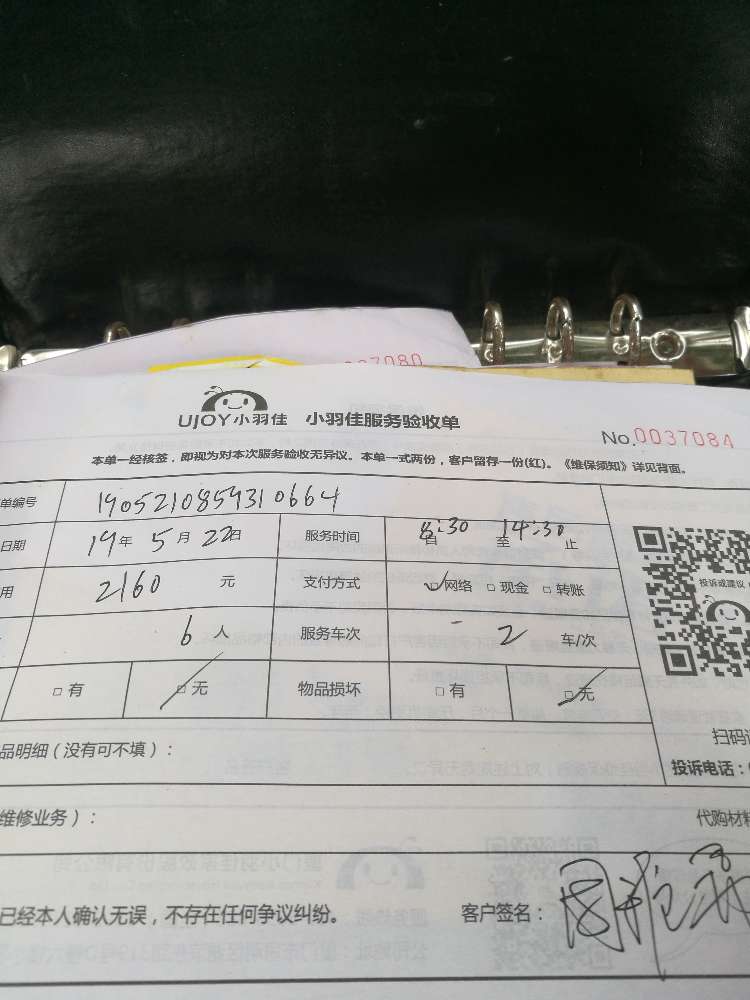 037080
UJOY小羽佳 小羽佳服务验收单
No.0037084
本单一经核签，即视为对本次服务验收无异议。本单一式两份，客户留存一份(红)。《维保须知》详见背面。
单编号 1905210859310664
日期 19年 5月 22日 服务时间 8:30 自 至 14:30 止
用 2160 元 支付方式 ☑网络 □现金 □转账
6人 服务车次 2 车/次
□有 ☑无 物品损坏 □有 ☑无
投诉或建议
扫码
品明细（没有可不填）：
投诉电话：
维修业务）：
代购材料
已经本人确认无误，不存在任何争议纠纷。 客户签名：